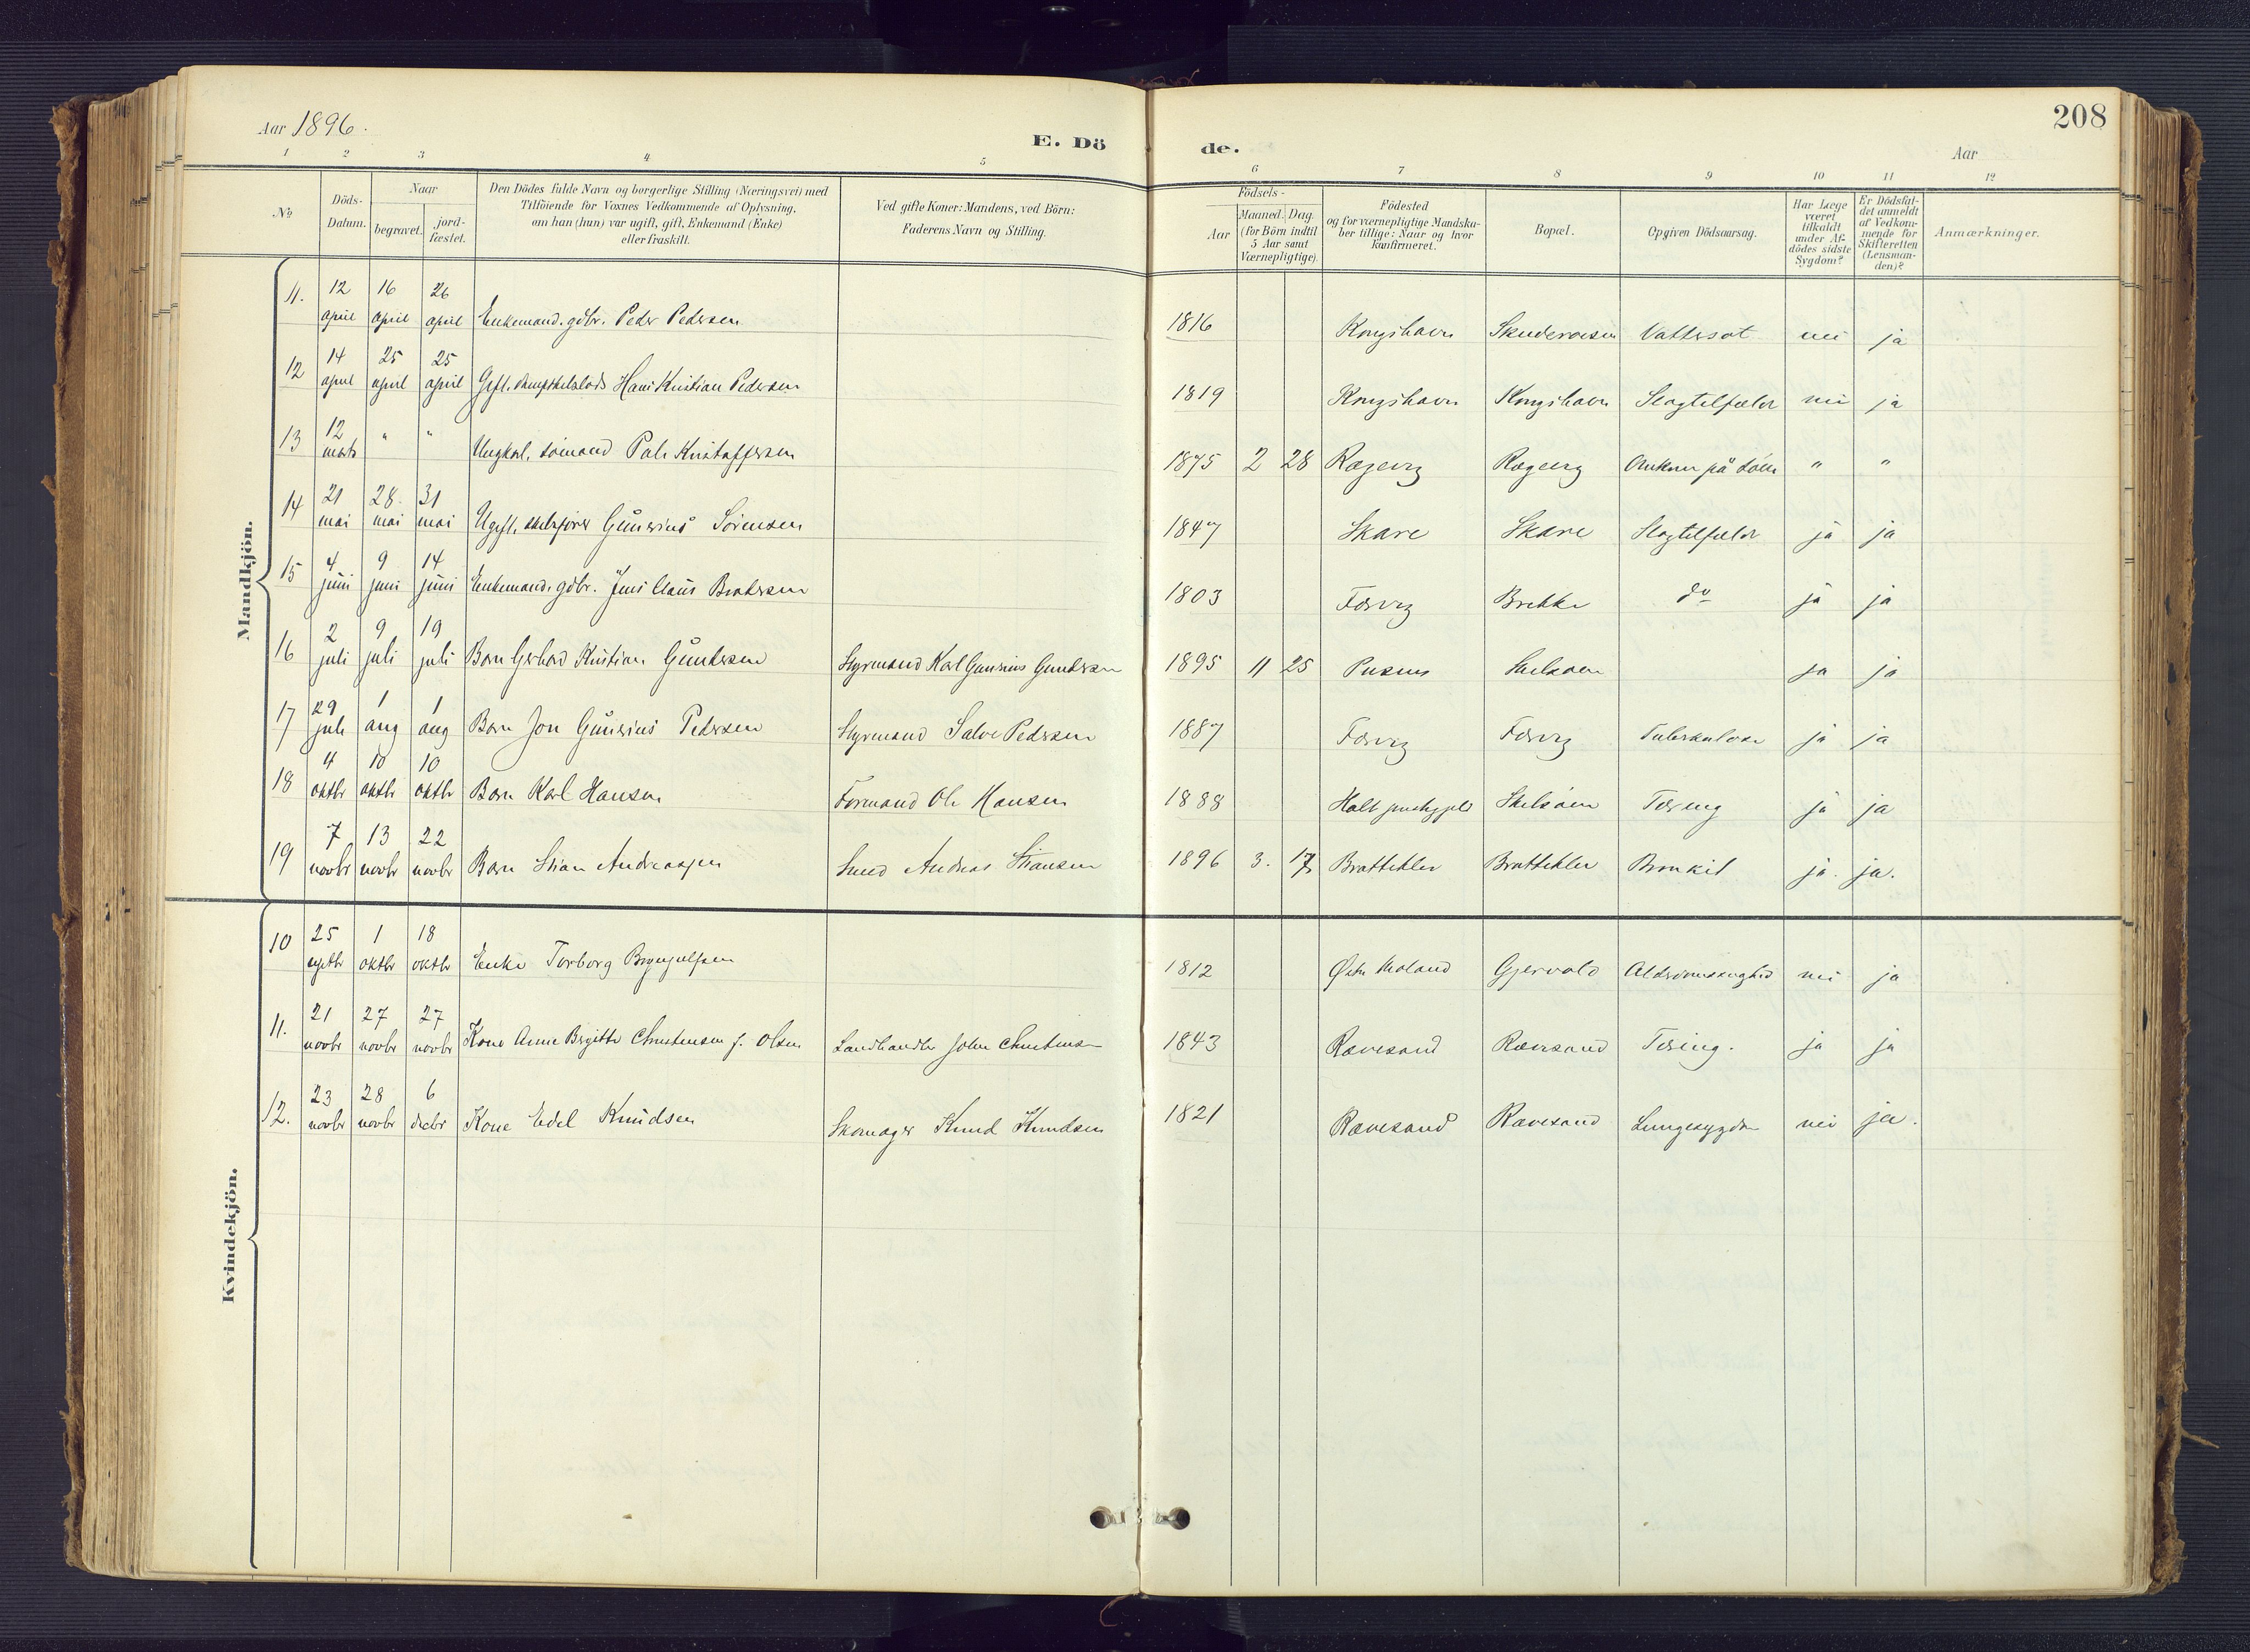 208
Aar 1896.
E. Dö de.
Aar
1 2 3 4 5 6 7 8 9 10 11 12
No
Döds-Datum.
Naar
begravet.
jord-fæstet.
Den Dödes fulde Navn og borgerlige Stilling (Næringsvei) med
Tilföiende for Voxnes Vedkommende af Oplysning,
om han (hun) var ugift, gift, Enkemand (Enke)
eller fraskilt.
Ved gifte Koner: Mandens, ved Börn:
Faderens Navn og Stilling.
Födsels-
Aar
Maaned. Dag.
(for Börn indtil
5 Aar samt
Værnepligtige).
Födested
og for værnepligtige Mandska-
ber tillige: Naar og hvor
konfirmeret.
Bopæl.
Opgiven Dödsaarsag.
Har Læge
været
tilkaldt
under Af-
dödes sidste
Sygdom?
Er Dödsfal-
det anmeldt
af Vedkom-
mende for
Skifteretten
(Lensman-
den)?
Anmærkninger.
Mandkjön.
11. 12 april 16 april 26 april Enkemand. gdbr. Peder Pedersen 1816 Kongshavn Vattersot nei ja
12 14 april 25 april 25 april Gift. Hans Kristian Pedersen 1819 Kongshavn Kongshavn Slagtilfælde nei ja
13 12 marts " " Ungkarl, sömand Kristoffersen 1875 2 28 Rægevig Rægevig på " "
14 21 mai 28. mai 31 mai Ugift. Gunerius Sörensen 1847 Skare Skare Slagtilfælde ja ja
15 4 juni 9 juni 14 juni Enkemand, gdbr. Jens Claus 1803 Færvig Brekke do ja ja
16 2 juli 9 juli 19 juli Barn Gerhard Kristian Gundersen Styrmand Karl Gunerius Gundersen 1895 11 25 ja ja
17 29 juli 1 aug 1 aug Barn Jon Gunerius Pedersen Styrmand Salve Pedersen 1887 Færvig Færvig Tuberkulose ja ja
18 4 oktbr 10 oktbr 10 oktbr Barn Karl Hansen Formand Ole Hansen 1888 Holt Tæring ja ja
19 7 novbr 13 novbr 22 novbr Barn Stian Andreassen Smed Andreas Stiansen 1896 3. 17 Brattekler Brattekler Bronkit ja. ja.
Kvindekjön.
10 25 septbr 1 oktbr 18 oktbr Enke Torborg 1812 Øster Moland Gjervold Alderdomssvaghed nei ja
11. 21 novbr 27 novbr 27 novbr Kone Anne Birgitte Christensen f. Olsen Landhandler John Christensen 1843 Rævesand Rævesand Tæring. ja ja
12. 23 novbr 28 novbr 6 decbr Kone Edel Knudsen Skomager Knud Knudsen 1821 Rævesand Rævesand Lungesygdom nei ja.